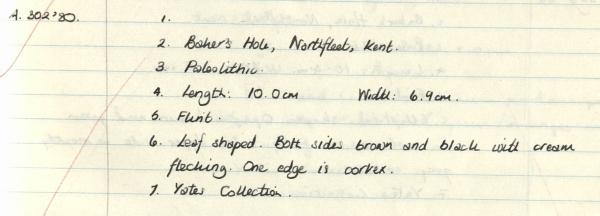 A. 302'80. 1.
2. Baker's Hole, Northfleet, Kent.
3. Paleolithic.
4. Length: 10.0cm Width: 6.9cm.
5. Flint.
6. Leaf shaped. Both sides brown and black with cream
flecking. One edge is cortex.
7. Yates Collection.